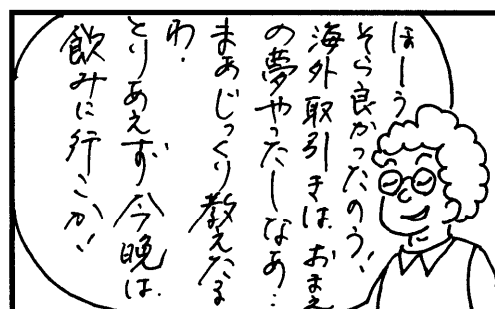 ほーう
そら良かったのう、
海外取引きは、おまえ
の夢やったしなあ…
まあじっくり教えたる
わ.
とりあえず今晩は.
飲みに行こか、